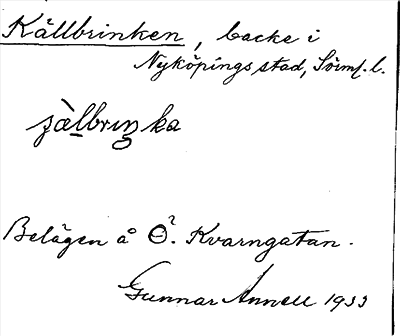 Källbrinken, backe i
Nyköpings stad, Söml. l.
Belägen å Ö. Kvarngatan.
Gunnar Annell 1933